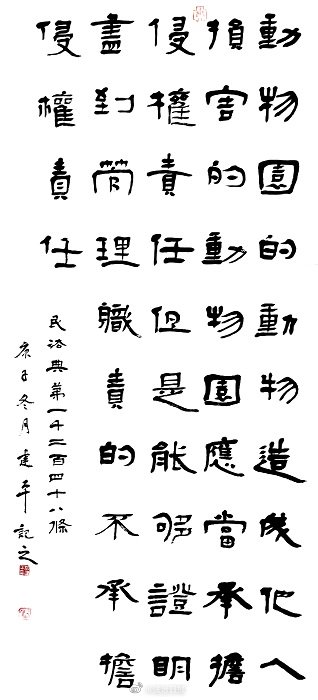 動物園的動物造成他人
損害的動物園應當承擔
侵權責任但是能夠證明
盡到管理職責的不承擔
侵權責任
民法典第一千二百四十八條
庚子冬月建平記之